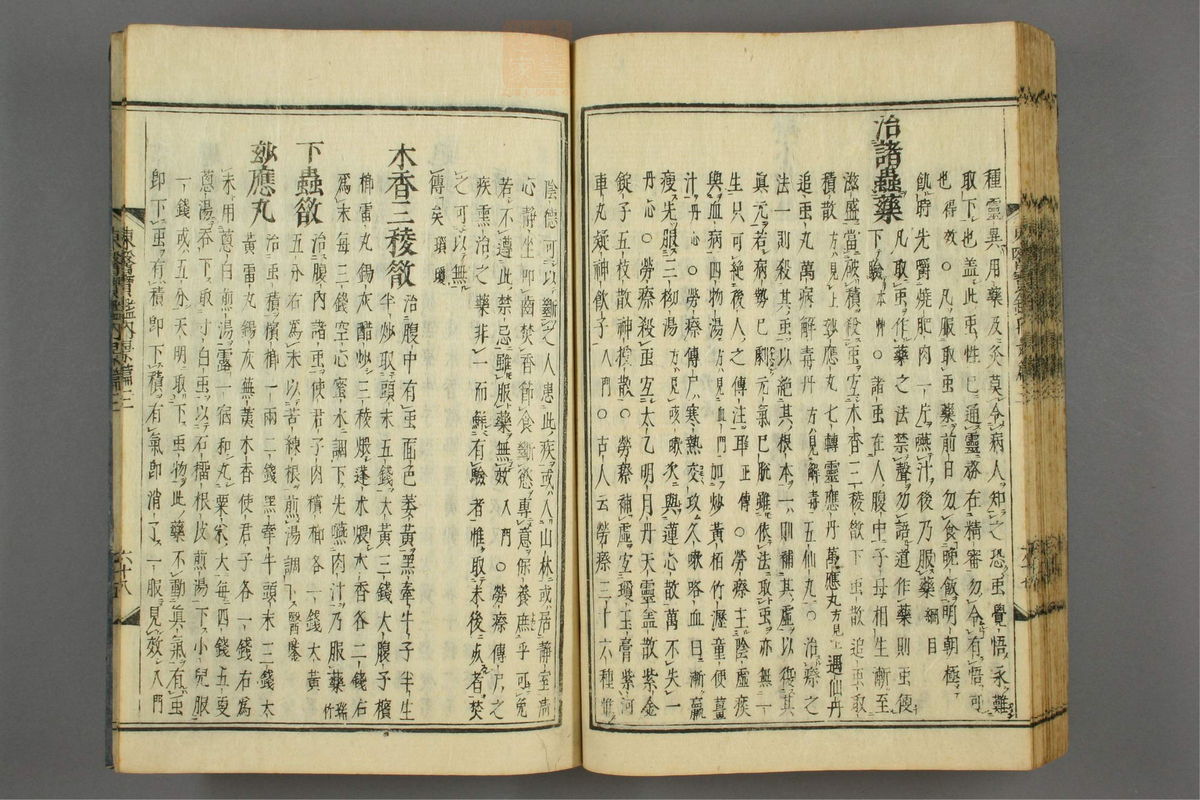 種靈異用藥及灸莫令病人知之恐虫覺悟永難
取下也盖此虫性已通靈務在精審勿令有悟可
也得效 凡取虫藥前日勿食晚飯明朝極
飢時先嚼燒肥肉一片嚥汁後乃服藥 綱目
治諸蟲藥
凡取虫作藥之法禁聲勿語道作藥則虫便
下驗 本艸 諸虫在人腹中子母相生漸至
滋盛當破積殺虫宜木香三稜散下虫散追虫取
積散 方見上 玅應丸七轉靈應丹萬應丸 方見上 遇仙丹
追虫丸萬病解毒丹 方見解毒 五仙丸 ○治瘵之
法一則殺其虫以絶其根本一則補其虛以復其
眞元若病勢已劇元氣已脫雖依法取虫亦無一
生只可絶後人之傳注耳 正傳 ○勞瘵主陰虛痰
與血病四物湯 方見血門 加炒黃栢竹瀝童便薑
汁 丹心 ○勞瘵傳尸寒熱交攻久嗽咯血日漸羸
瘦先服三拗湯 方見咳嗽 次與蓮心散萬不失一
丹心 ○勞瘵殺虫宜太乙明月丹天靈盖散紫金
錠子五枝散神授散 ○勞瘵補虛宜瓊玉膏紫河
車丸疑神飮子 入門 ○古人云勞瘵三十六種惟
陰德可以斷之人患此疾或入山林或居靜室淸
心靜坐叩齒焚香節食斷慾專意保養庶乎可免
若不遵此禁忌雖服藥無效 入門 ○勞瘵傳尸之
疾熏治之藥非一而鮮有驗者惟取未後灸者焚
之可以無
傳矣 瑣瓊
木香三稜散
治腹中有虫面色萎黃黑牽牛子半生
半炒取頭末五錢大黃三錢大腹子檳
榔雷丸錫灰醋炒三稜煨蓬朮煨木香各二錢右
爲末每三錢空心蜜水調下先嚥肉汁乃服藥 瑞竹
下蟲散
治腹內諸虫使君子肉檳榔各一錢大黃
五分右爲末以苦練根煎湯調下 醫鑑
玅應丸
治虫積檳榔一兩二錢黑牽牛頭末三錢大
黃雷丸錫灰蕪荑木香使君子各一錢右爲
末用葱白煎湯露一宿和丸粟米大每四錢五更
葱湯呑下取寸白虫以石榴根皮煎湯下小兒服
一錢或五分天明取下虫物此藥不動眞氣有虫
卽下虫有積卽下積有氣卽消了一服見效 入門
東醫寶鑑內景篇三
六十八